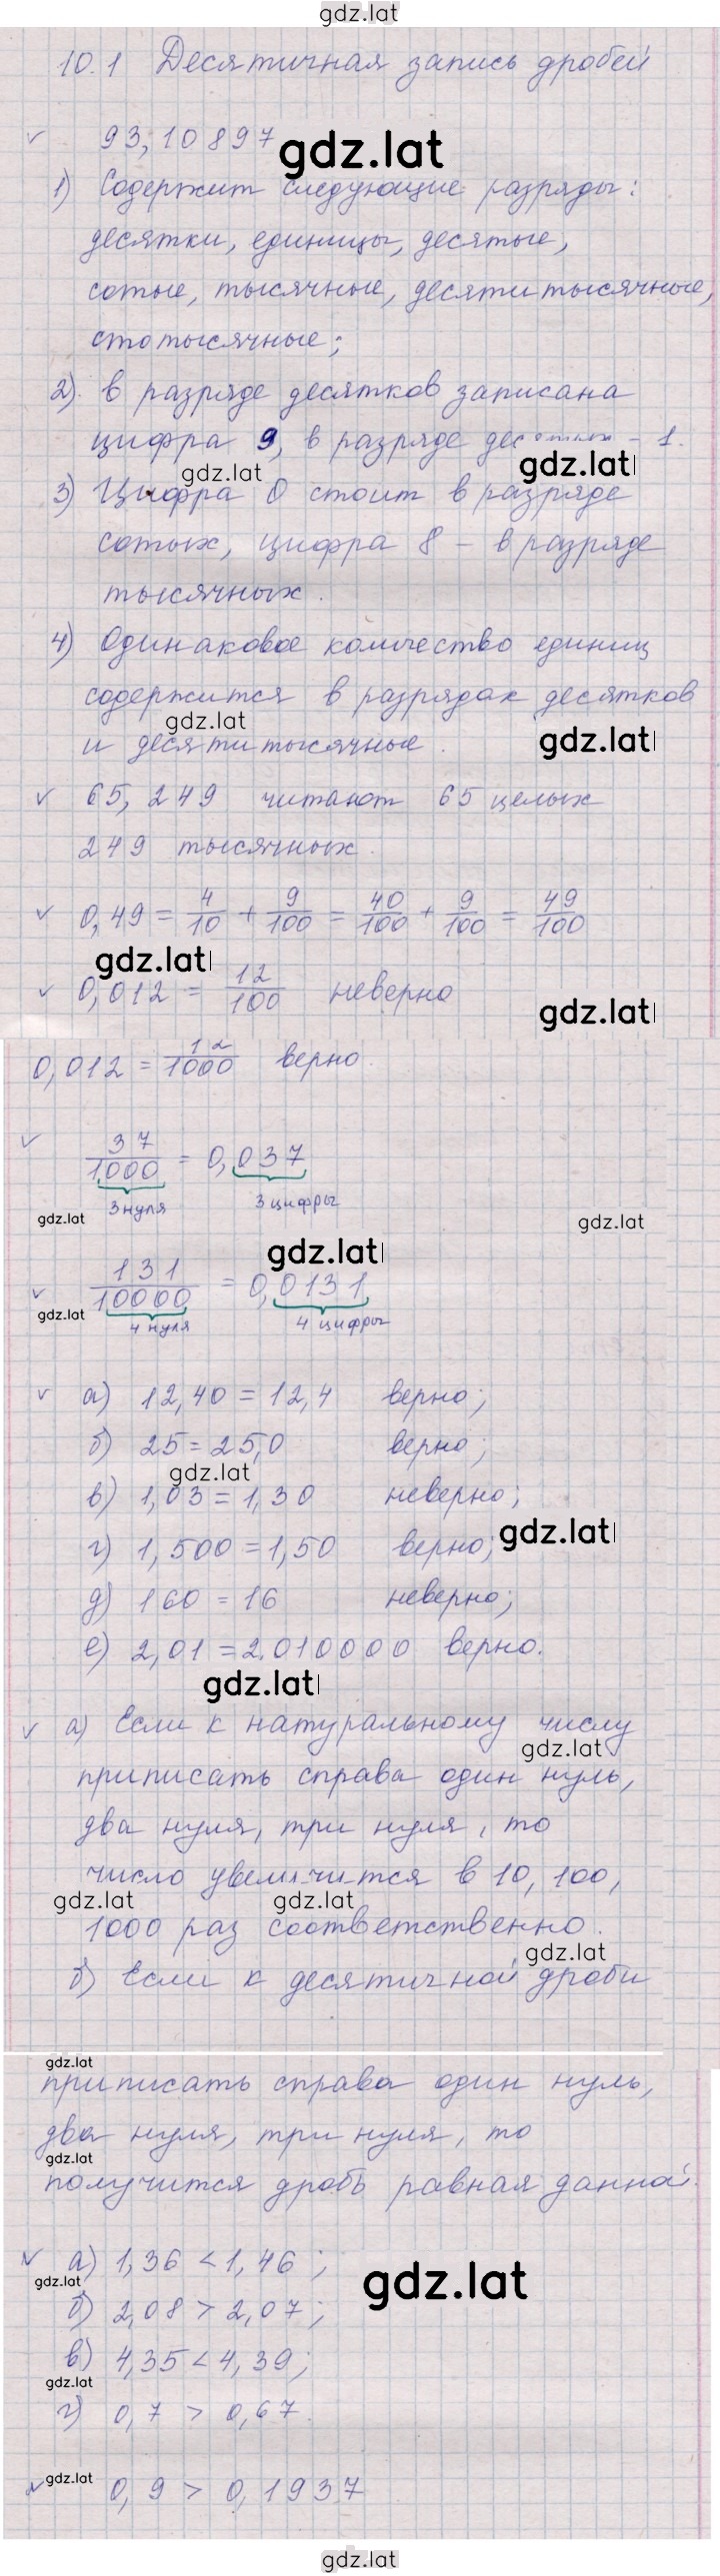 gdz.lat
10.1 Десятичная запись дробей
√ 93,10897
gdz.lat
1) Содержит следующие разряды:
десятки, единицы, десятые,
сотые, тысячные, десятитысячные,
стотысячные;
2) в разряде десятков записана
цифра 9, в разряде десятых - 1.
gdz.lat gdz.lat
3) Цифра 0 стоит в разряде
сотых, цифра 8 - в разряде
тысячных.
4) Одинаковое количество единиц
содержится в разрядах десятков
gdz.lat gdz.lat
и десятитысячные.
√ 65,249 читают 65 целых
249 тысячных.
√ 0,49 = 4/10 + 9/100 = 40/100 + 9/100 = 49/100
gdz.lat
√ 0,012 = 12/100 неверно
gdz.lat
0,012 = 12/1000 верно.
√ 37/1000 = 0,037
3 нуля 3 цифры
gdz.lat gdz.lat
gdz.lat
√ 131/10000 = 0,0131
gdz.lat
4 нуля 4 цифры
√ а) 12,40 = 12,4 верно;
б) 25 = 25,0 верно;
gdz.lat
в) 1,03 = 1,30 неверно;
г) 1,500 = 1,50 верно;
gdz.lat
д) 160 = 16 неверно;
е) 2,01 = 2,010000 верно.
gdz.lat
√ а) Если к натуральному числу
gdz.lat
приписать справа один нуль,
два нуля, три нуля, то
число увеличится в 10, 100,
gdz.lat gdz.lat
1000 раз соответственно.
gdz.lat
б) Если к десятичной дроби
gdz.lat
приписать справа один нуль,
два нуля, три нуля, то
gdz.lat
получится дробь равная данной.
√ а) 1,36 < 1,46;
gdz.lat gdz.lat
б) 2,08 > 2,07;
в) 4,35 < 4,39;
gdz.lat
г) 0,7 > 0,67.
gdz.lat
√ 0,9 > 0,1937
gdz.lat